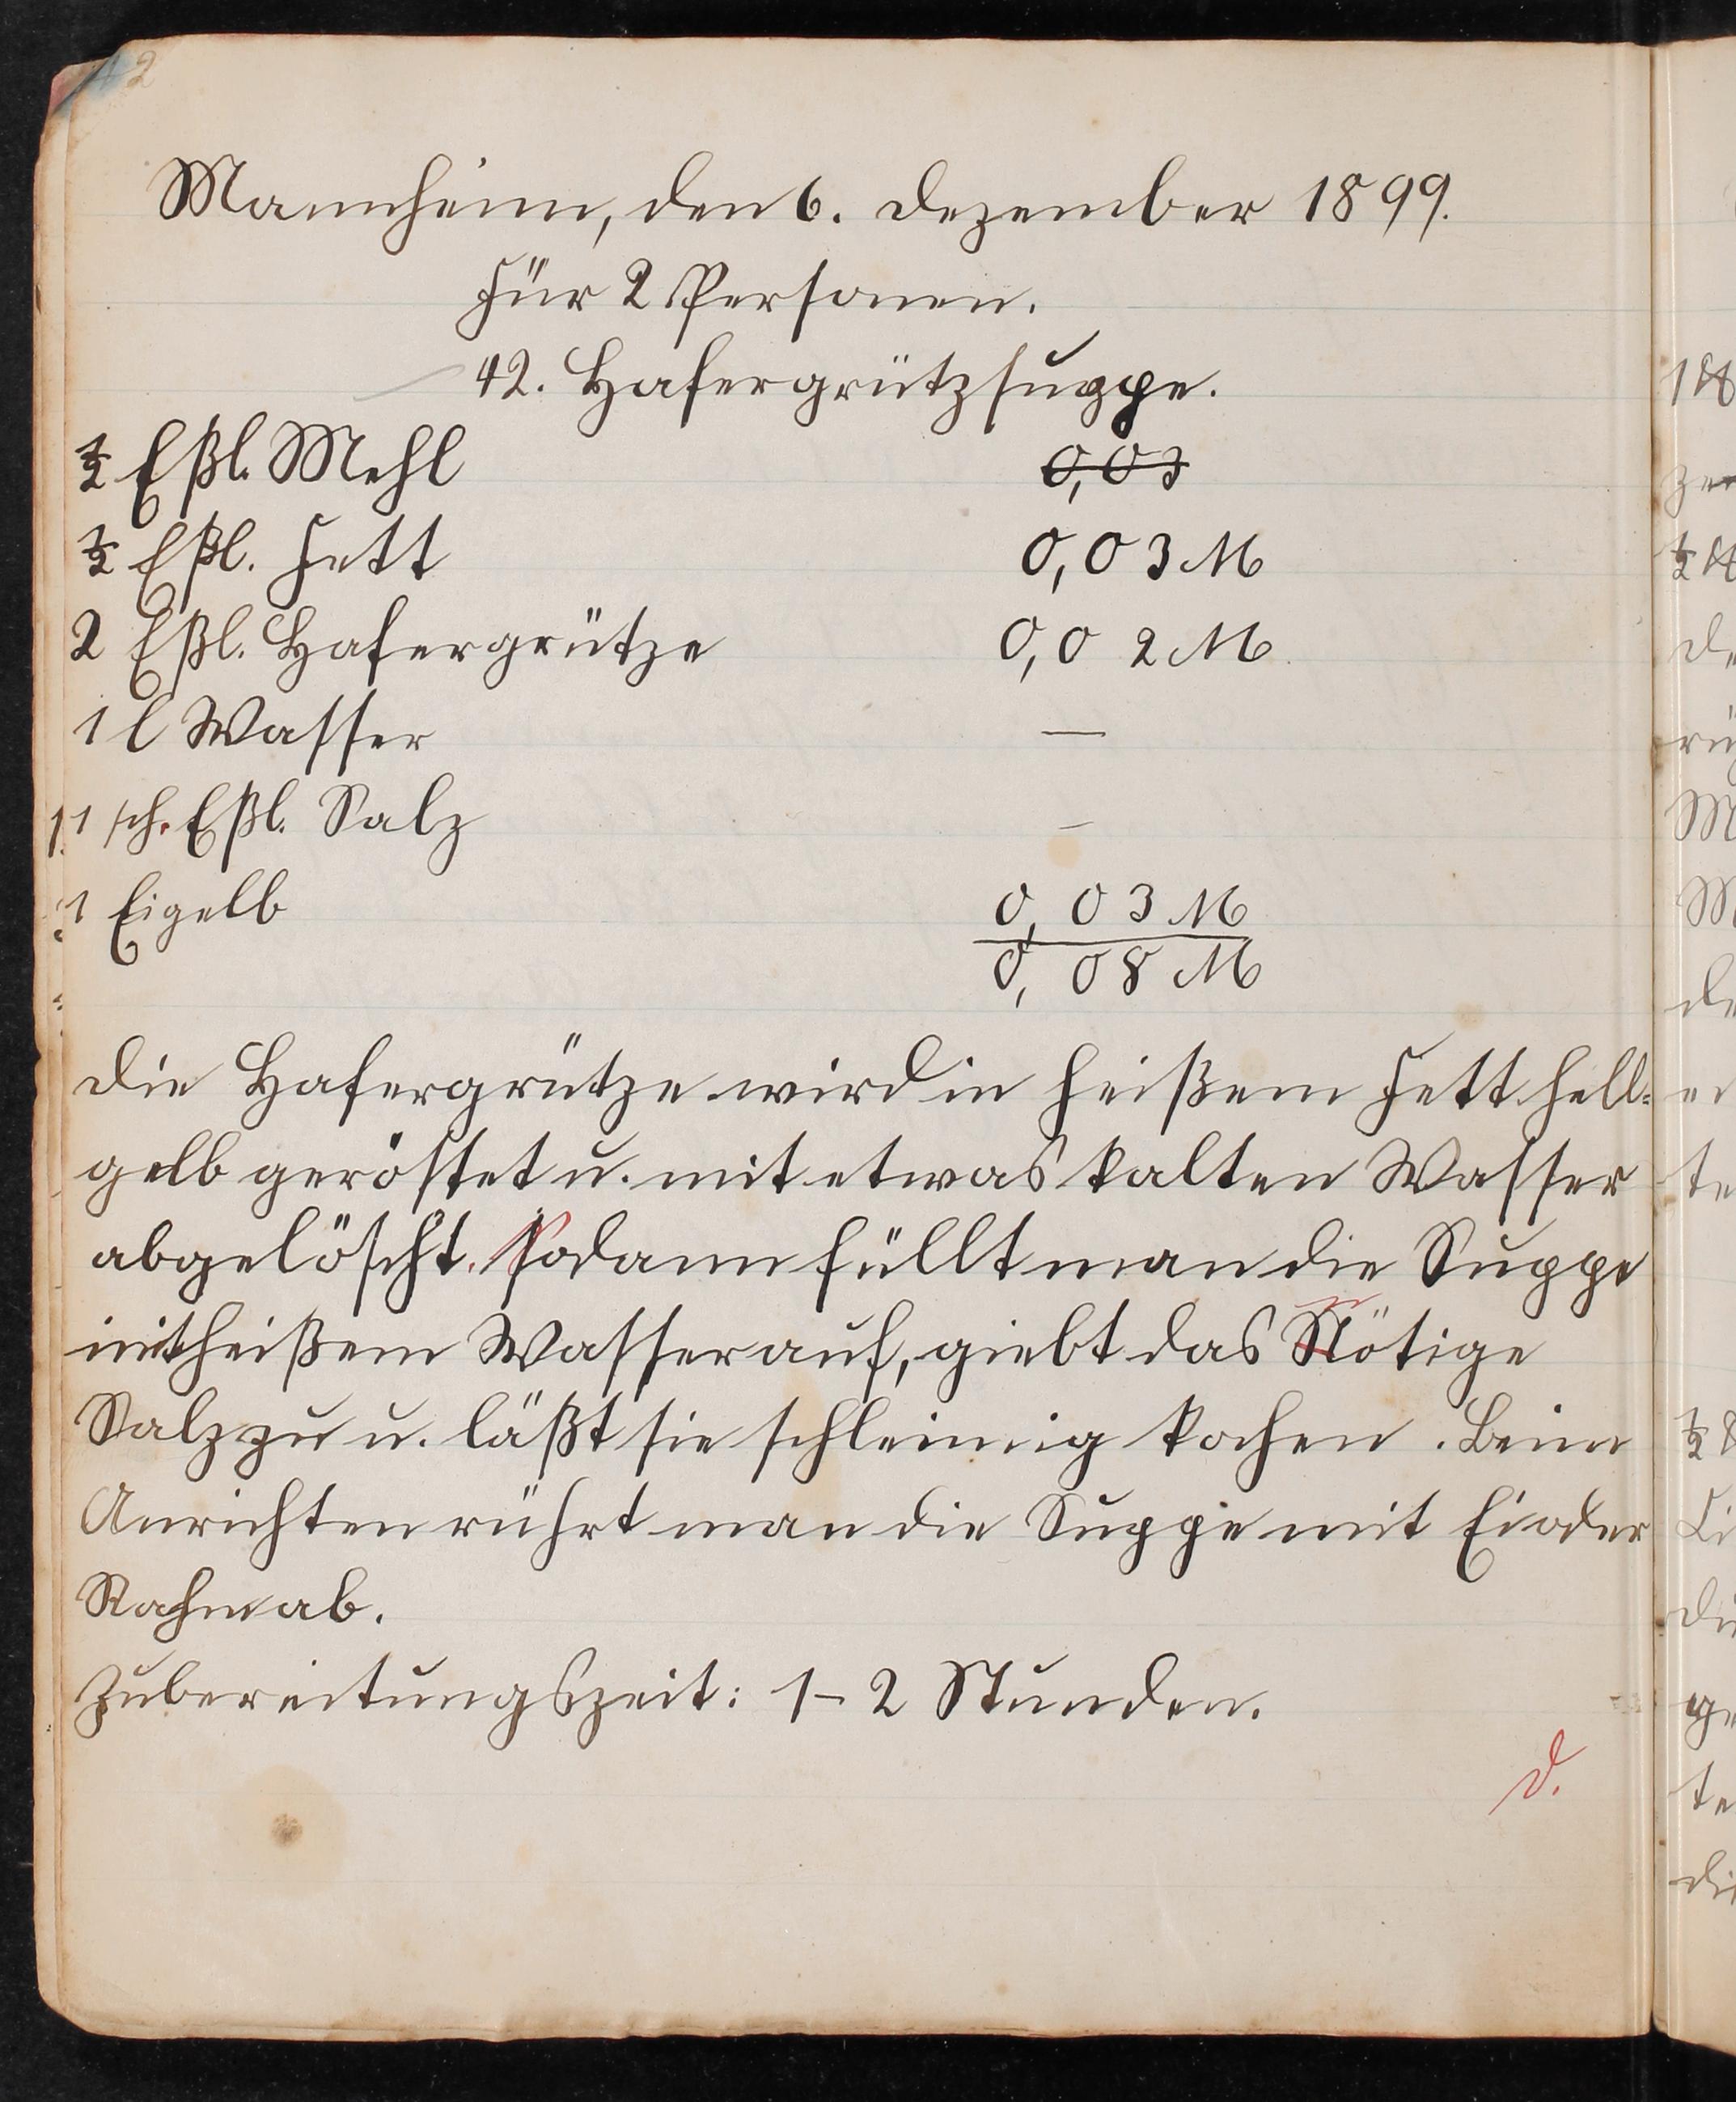 42
Mannheim, den 6. Dezember 1899.
Für 2 Personen.
42. Hafergrützsuppe.
½ Eßl. Mehl 0,03
½ Eßl. Fett 0,03 M
2 Eßl. Hafergrütze 0,02 M.
1 l Wasser —
1 sch. Eßl. Salz –
1 Eigelb 0,03 M
0,08 M
Die Hafergrütze wird in heißem Fett hell-
gelb geröstet u. mit etwas kalten Wasser
abgelöscht. Sodann füllt man die Suppe
mit heißem Wasser auf, giebt das nötige
Salz zu u. läßt sie schleimig kochen. Beim
Anrichten rührt man die Suppe mit Ei oder
Rahm ab.
Zubereitungszeit: 1–2 Stunden.
D.